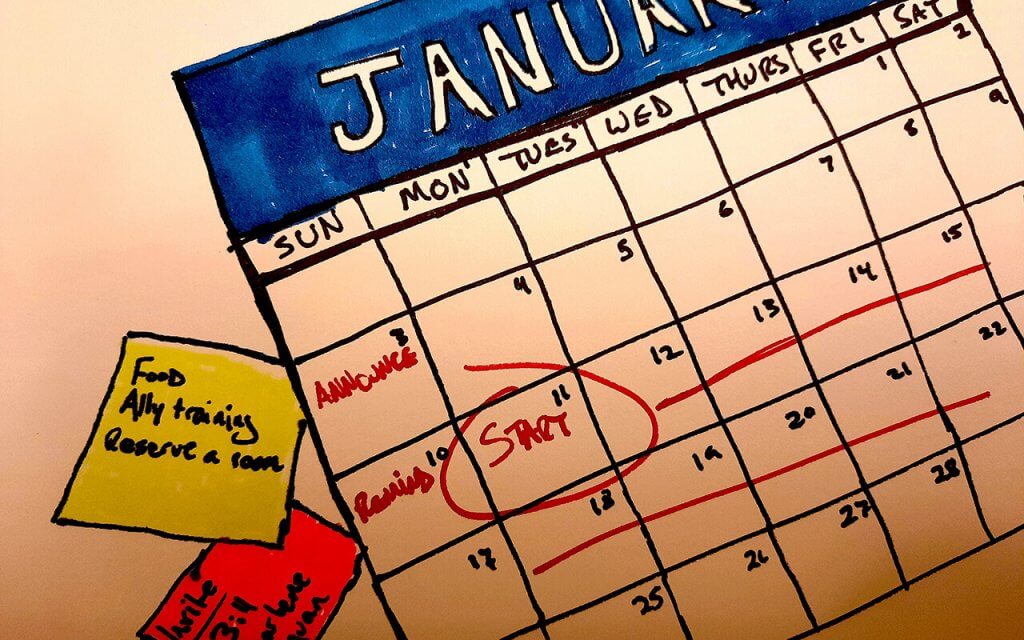 JANUAR
SUN MON TUES WED THURS FRI SAT
1 2
3 4 5 6 7 8 9
ANNOUNCE
10 11 12 13 14 15
Remind START
17 18 19 20 21 22
25 26 27 28
Food
Ally training
Reserve a room
Invite
Bill